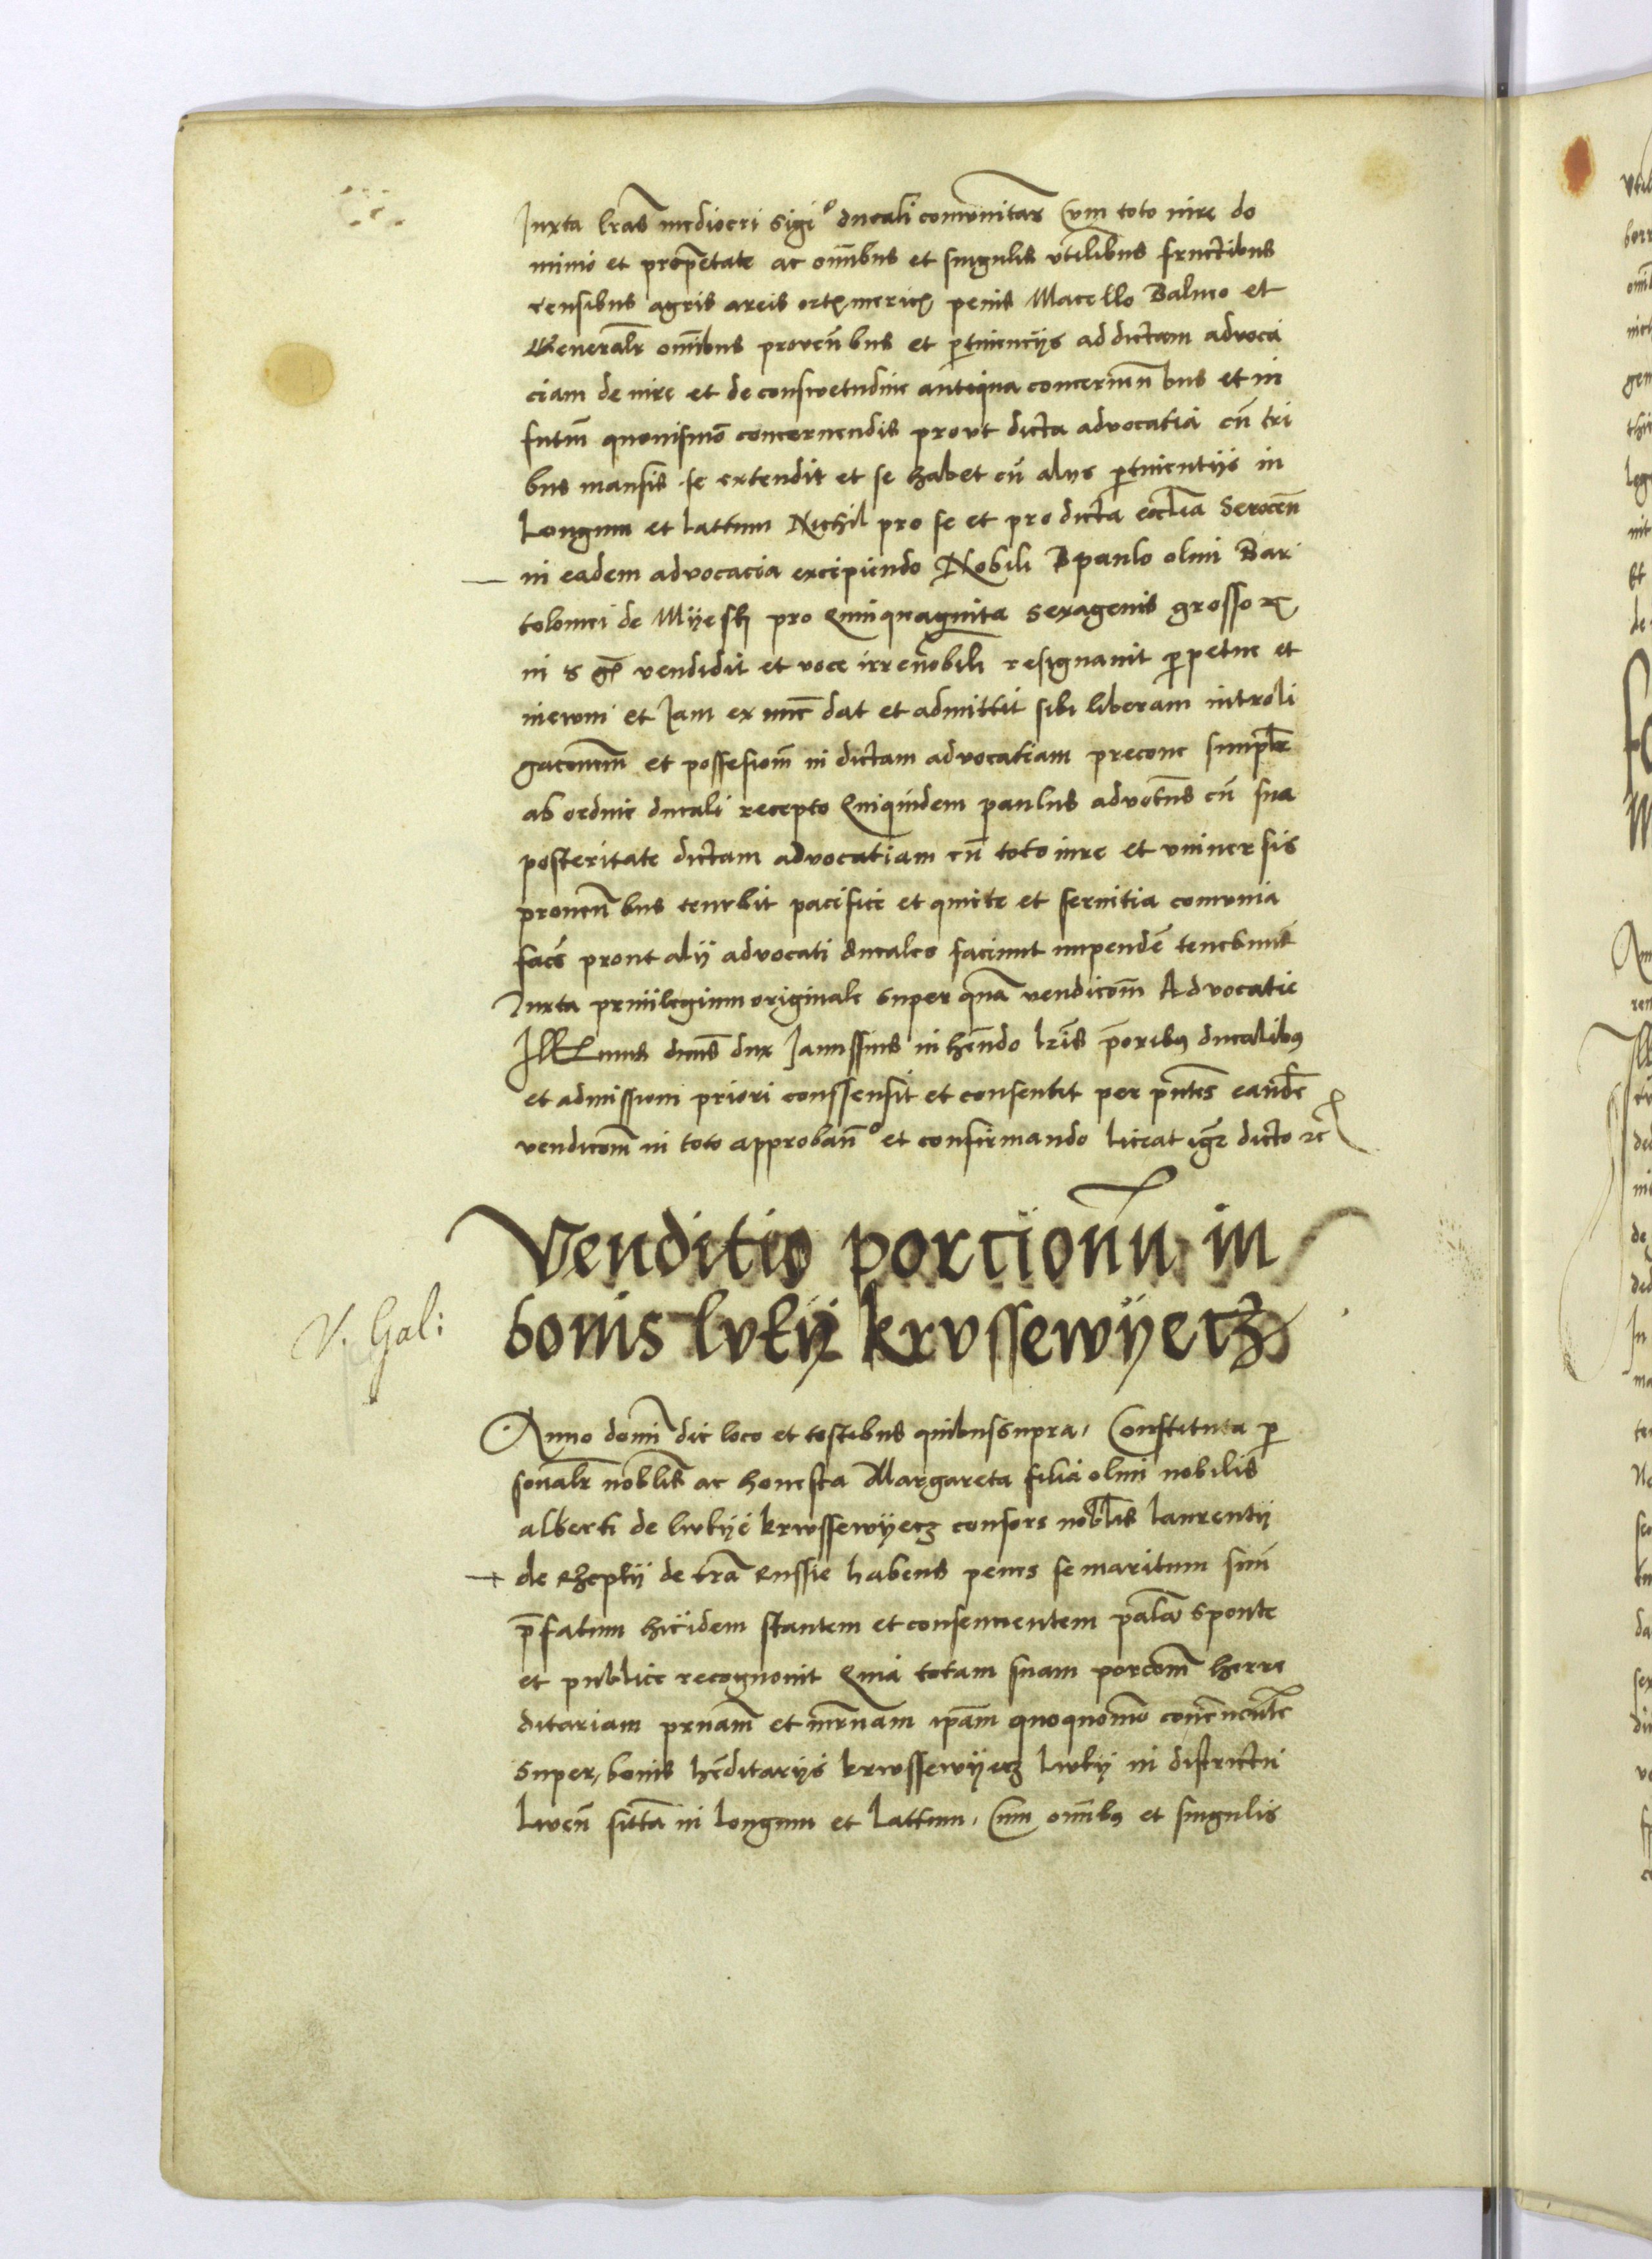 Juxta lras mediocri sigi° ducali comunitas Cum toto iure do
minio et proprietate ac omibus et singulis utilibus fructibus
censibus agris areis ortis mericis penis Macello Balneo et
Generalr omibus provenbus et ptinencijs ad dictam advoca
ciam de iure et de consvetudine antiqua concernenbus et in
futm quouismo concernendis provt dicta advocatia cu tri
bus mansis se extendit et se habet cu alys ptinentijs in
Longum et lattum Nichil pro se et pro dicta ecclia Serocen
in eadem advocacia excipiendo Nobili D paulo olim Bar
tolomei de Myesk pro Quinquaginta sexagenis grosso
in s gr vendidit et voce irrevobili resignavit ppetue et
inewm et Jam ex nuc dat et admittit sibi liberam introli
gaconem et possesiom in dictam advocatiam precone simplr
ab ordine ducali recepto Quiquidem paulus advotus cu sua
posteritate dictam advocatiam cu toto iure et vniuersis
prouenbus tenebit pacifice et quite et seruitia comunia
faces prout alij advocati ducales faciunt impende tenebunt
Juxta priuilegium originale super qua vendicom Advocatie
Illmus dnus dux Janussius inhendo lris prioribus ducalibus
et admissioni priori conssensit et consentit per pntes eande
vendicom in toto approban° et confirmando liceat igr dicto rc
Venditio porcionu in
bonis lvtij krvssewyecz
V. Gal:
Anno domi die loco et testibus quibus supra, Constituta p
sonalr noblis ac honesta Margareta filia olim nobilis
alberti de lutije krwssewyecz consors noblis laurentij
de Rheplij de tra Russie habens penes se maritum suu
pfatum hicidem stantem et consencientem palam sponte
et publice recognouit Quia totam suam porcom herre
ditariam prnam et mrnam ipam quoquomo concnente
super, bonis heditarijs krwssewyecz lwtij in districtu
Liven sitta in longum et lattum, Cum omibus et singulis